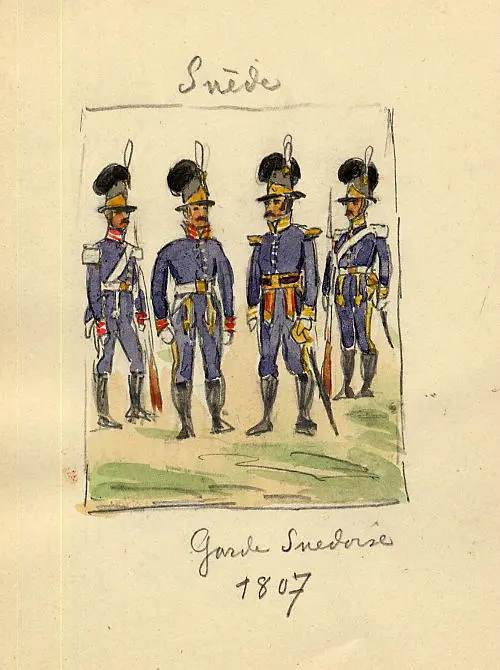 Suède
Garde Suedoise
1807